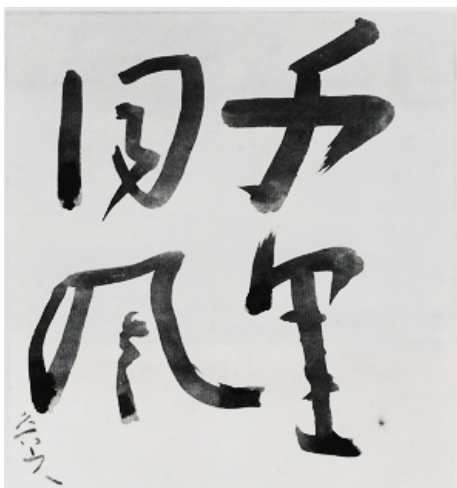 千里
同風